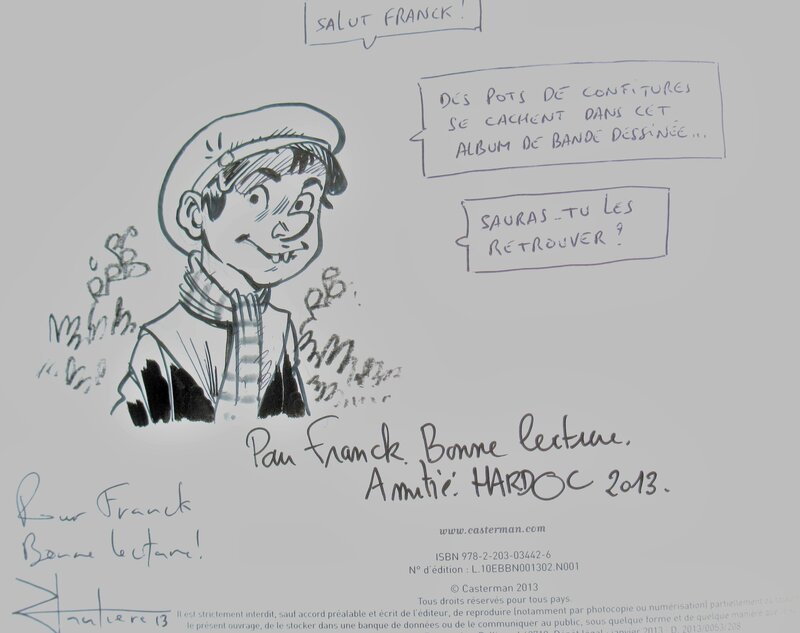 SALUT FRANCK !
DES POTS DE CONFITURES
SE CACHENT DANS CET
ALBUM DE BANDE DESSINÉE...
SAURAS-TU LES
RETROUVER ?
Pour Franck. Bonne lecture.
Amitié. HARDOC 2013.
Pour Franck
Bonne lecture!
13
www.casterman.com
ISBN 978-2-203-03442-6
N° d'édition : L.10EBBN001302.N001
© Casterman 2013
Tous droits réservés pour tous pays.
Il est strictement interdit, sauf accord préalable et écrit de l'éditeur, de reproduire (notamment par photocopie ou numérisation) partiellement ou
le présent ouvrage, de le stocker dans une banque de données ou de le communiquer au public, sous quelque forme et de quelque manière que
2013 D. 2013/0053/208